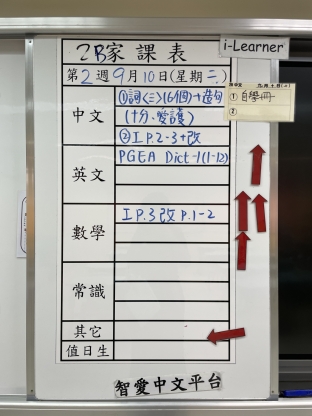 2B家課表
i-Learner
第2週9月10日(星期二)
① 自學冊
②
中文
①詞(三)(6個)+造句
(十分、愛護)
②I.P.2-3+改
英文
PGEA Dict-1(1-12)
數學
I.P.3改 P.1-2
常識
其它
值日生
智愛中文平台